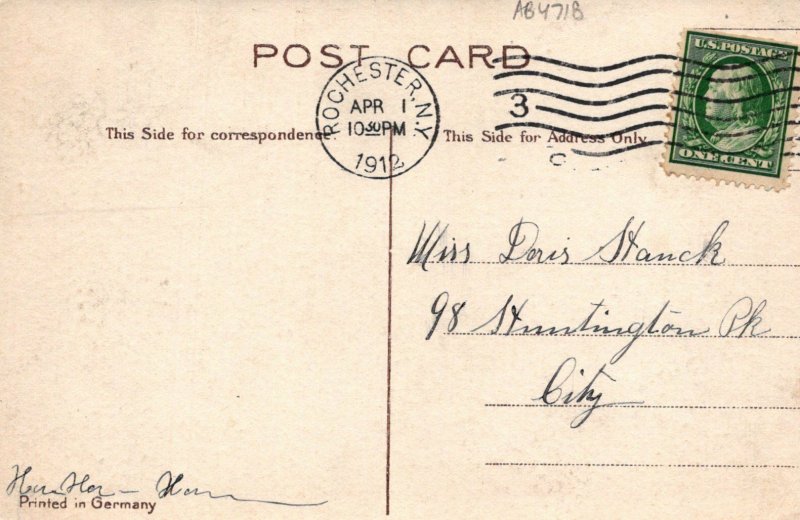 AB4718
POST CARD
U.S. POSTAGE
ROCHESTER, N.Y.
APR 1
10 30 PM
1912
3
This Side for correspondence
This Side for Address Only
ONE CENT
Miss Doris Stanck
98 Huntington Pk
City
Printed in Germany